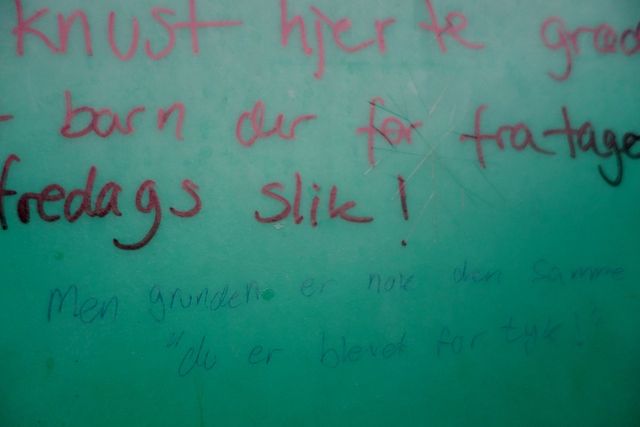 knust hjerte græd
barn der får fratage
fredags slik!
Men grunden er nok den samme
"du er blevet for tyk!"